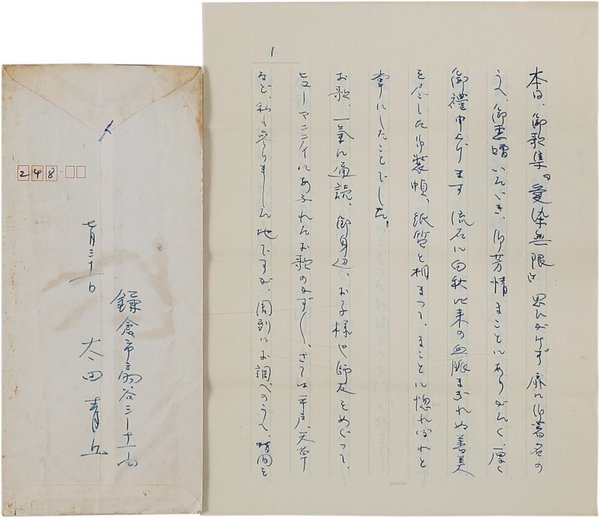 1
本日、御歌集『愛染無限』思ひがけず扉に御署名の
うへ、御恵贈いたゞき、御芳情まことにありがたく、厚く
御禮申上げます 流石に白秋以来の血脈まぎれぬ善美
を尽した御装幀、紙質と相まつて、まことに惚れ惚れと
手にしたことでした。
お歌、一気に通読、御身辺、お子様や師友をめぐつて、
ヒューマニティにあふれたお歌のかずかず、さては平戸、天草
など、私も参りました地ですが、周到にお調べのうへ、時間を
248
七月三十一日
鎌倉市扇谷三ノ十一ノ
太田青丘